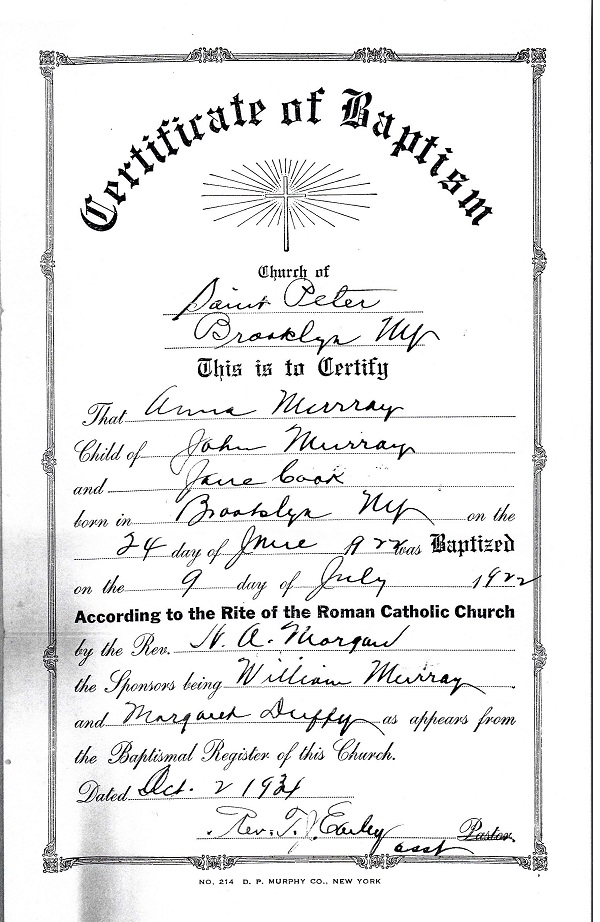 Certificate of Baptism
Church of
Saint Peter
Brooklyn NY
This is to Certify
That Anna Murray
Child of John Murray
and Jane Cook
born in Brooklyn NY on the
24 day of June 1922 was Baptized
on the 9 day of July 1922
According to the Rite of the Roman Catholic Church
by the Rev. N. A. Morgan
the Sponsors being William Murray
and Margaret Duffy as appears from
the Baptismal Register of this Church.
Dated Oct. 2 1934
Rev. T. J. Earley Pastor.
asst
NO. 214 D. P. MURPHY CO., NEW YORK